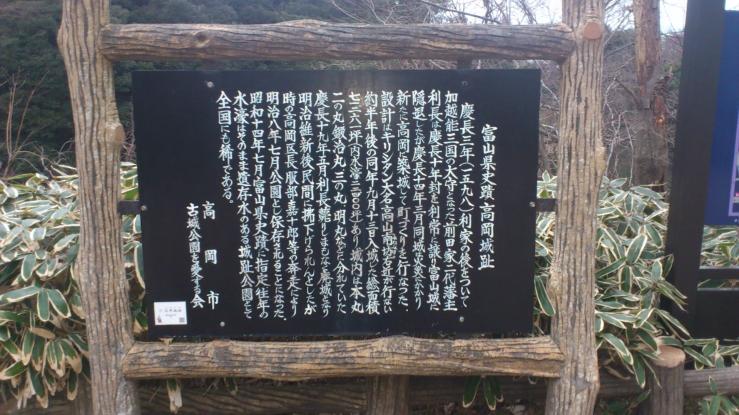 富山県史蹟 高岡城趾
慶長三年(一五九八)利家の後をついで
加越能三国の太守になった前田家二代藩主
利長は慶長十年封を利常に譲り富山城に
隠退したが慶長十四年三月同城は火災にかかり
新たに高岡に築城して町づくりを行なった.
設計はキリシタン大名高山右近が行ない
約半年後の同年九月十三日入城した総面積
内は本丸
二の丸鍛冶丸三の丸明丸などに分れていた
慶長十九年五月利長薨りまもなく廃城となり
明治維新後民間に払下げられんとしたが
時の高岡区長服部嘉十郎等の奔走により
明治八年七月公園として保存されることになった.
昭和十四年七月富山県史蹟に指定往年の
水濠はそのまま遺存水のある城趾公園として
全国にも稀である.
高岡市
古城公園を愛する会